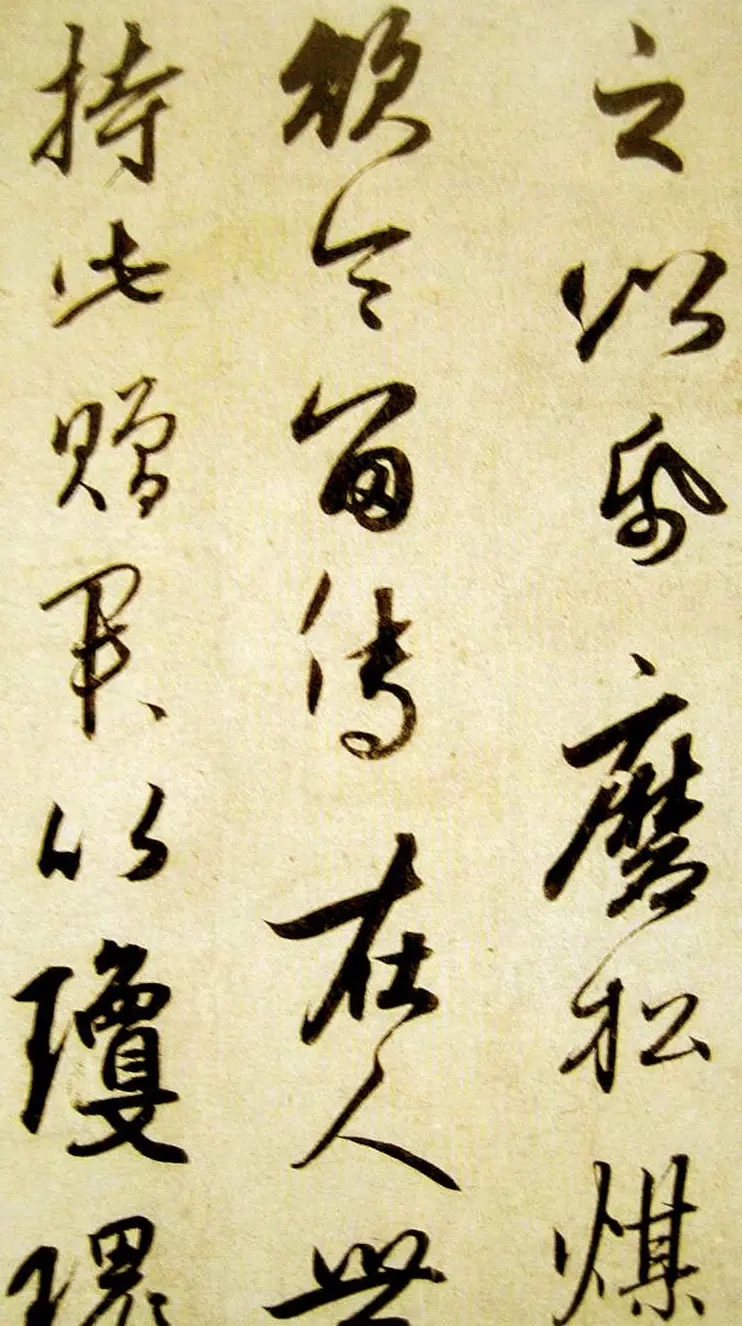 之以帋磨松煤
欲令留傳在人世
持此贈君以瓊